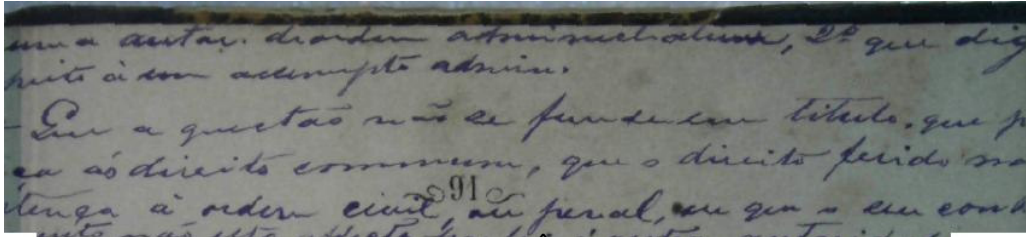 uma autor. da ordem administrativa, 2º que dig
peito à um assumpto admin.
Que a questão não se funde em titulo, que p
ça ao direito commum, que o direito ferido não
tença à ordem civil, ou penal, em que o seu cond
91